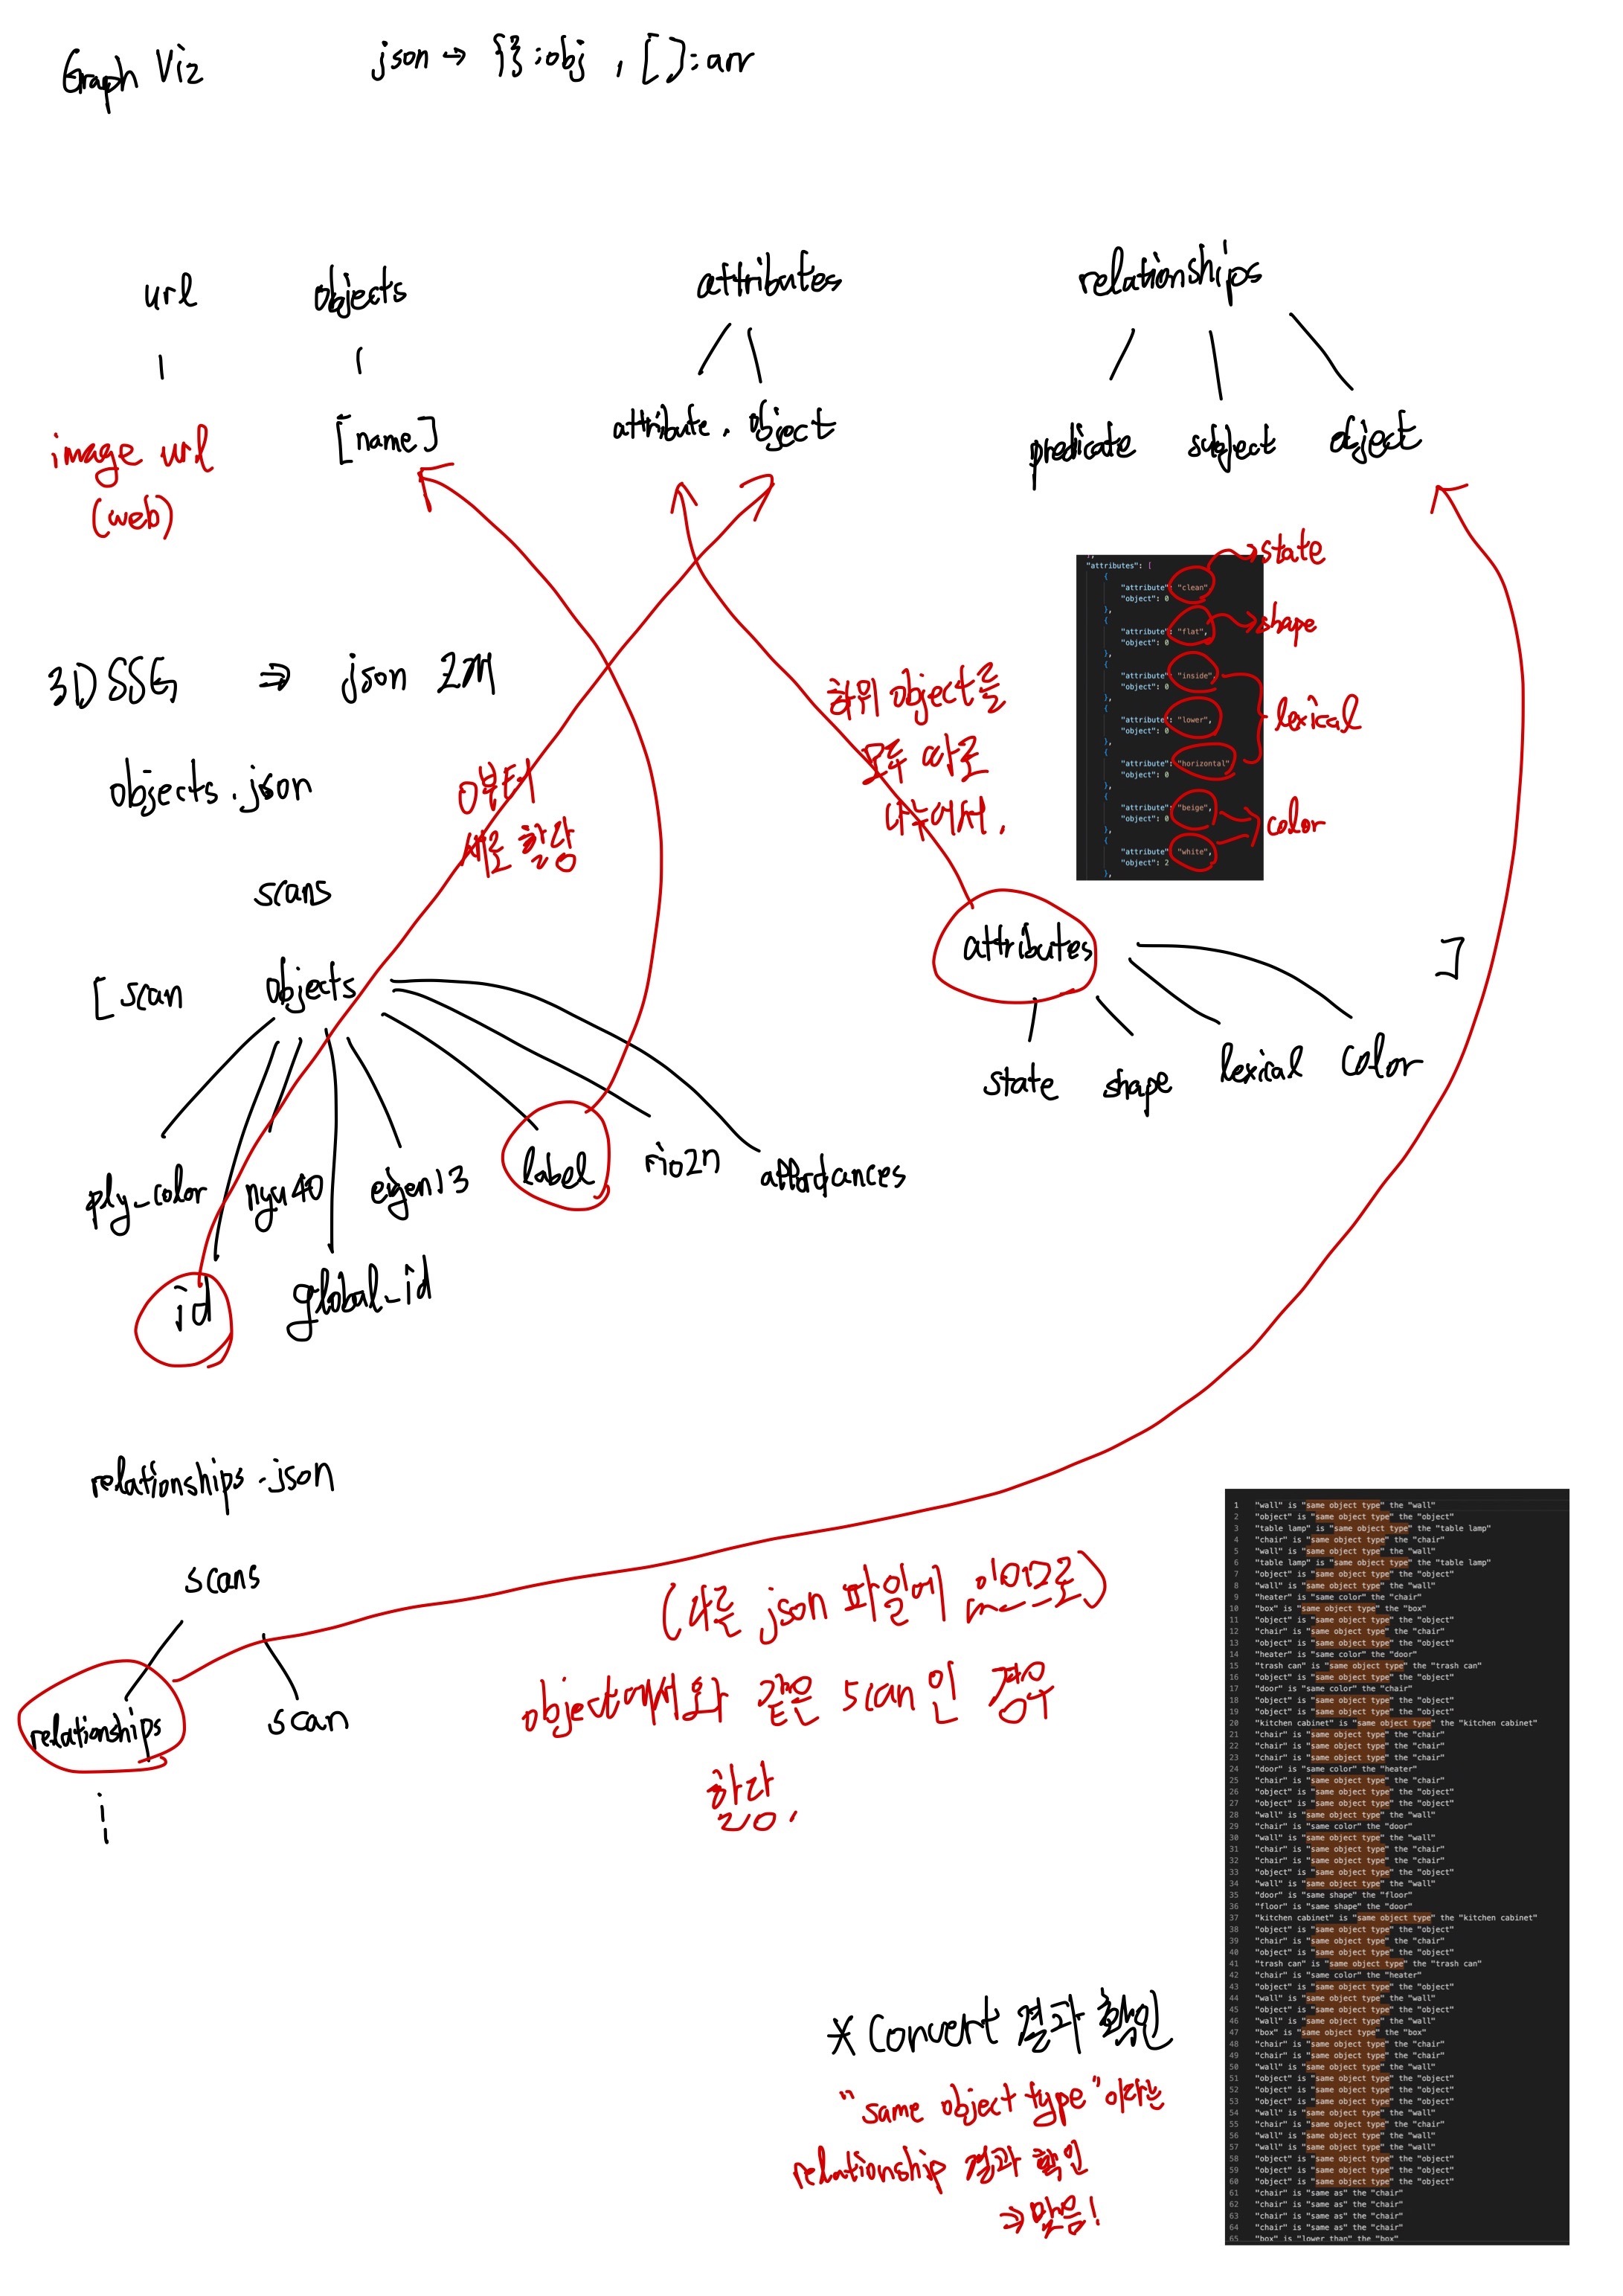 Graph Viz
json → {} : obj , [] : arr
url
objects
attributes
relationships
image url
(web)
[name]
attribute , object
predicate
subject
object
3DSSG ⇒ json 2개
objects.json
0부터
새로 할당
하위 object를
모두 따로
나누어서.
"attributes": [
{
"attribute": "clean",
"object": 0
},
{
"attribute": "flat",
"object": 0
},
{
"attribute": "inside",
"object": 0
},
{
"attribute": "lower",
"object": 0
},
{
"attribute": "horizontal"
"object": 0
},
{
"attribute": "beige",
"object": 0
},
{
"attribute": "white",
"object": 2
},
state
shape
lexical
color
scans
[scan
objects
attributes
]
state
shape
lexical
color
ply_color
nyu40
eigen13
label
rio27
affordances
id
global_id
relationships.json
scans
relationships
scan
(다른 json 파일에 있으므로)
object에서와 같은 scan인 경우
할당.
* Convert 결과 확인
"same object type"이라는
relationship 결과 확인
⇒ 많음!
1 "wall" is "same object type" the "wall"
2 "object" is "same object type" the "object"
3 "table lamp" is "same object type" the "table lamp"
4 "chair" is "same object type" the "chair"
5 "wall" is "same object type" the "wall"
6 "table lamp" is "same object type" the "table lamp"
7 "object" is "same object type" the "object"
8 "wall" is "same object type" the "wall"
9 "heater" is "same color" the "chair"
10 "box" is "same object type" the "box"
11 "object" is "same object type" the "object"
12 "chair" is "same object type" the "chair"
13 "object" is "same object type" the "object"
14 "heater" is "same color" the "door"
15 "trash can" is "same object type" the "trash can"
16 "object" is "same object type" the "object"
17 "door" is "same color" the "chair"
18 "object" is "same object type" the "object"
19 "object" is "same object type" the "object"
20 "kitchen cabinet" is "same object type" the "kitchen cabinet"
21 "chair" is "same object type" the "chair"
22 "chair" is "same object type" the "chair"
23 "chair" is "same object type" the "chair"
24 "door" is "same color" the "heater"
25 "chair" is "same object type" the "chair"
26 "object" is "same object type" the "object"
27 "object" is "same object type" the "object"
28 "wall" is "same object type" the "wall"
29 "chair" is "same color" the "door"
30 "wall" is "same object type" the "wall"
31 "chair" is "same object type" the "chair"
32 "chair" is "same object type" the "chair"
33 "object" is "same object type" the "object"
34 "wall" is "same object type" the "wall"
35 "door" is "same shape" the "floor"
36 "floor" is "same shape" the "door"
37 "kitchen cabinet" is "same object type" the "kitchen cabinet"
38 "object" is "same object type" the "object"
39 "chair" is "same object type" the "chair"
40 "object" is "same object type" the "object"
41 "trash can" is "same object type" the "trash can"
42 "chair" is "same color" the "heater"
43 "object" is "same object type" the "object"
44 "wall" is "same object type" the "wall"
45 "object" is "same object type" the "object"
46 "wall" is "same object type" the "wall"
47 "box" is "same object type" the "box"
48 "chair" is "same object type" the "chair"
49 "chair" is "same object type" the "chair"
50 "wall" is "same object type" the "wall"
51 "object" is "same object type" the "object"
52 "object" is "same object type" the "object"
53 "object" is "same object type" the "object"
54 "wall" is "same object type" the "wall"
55 "chair" is "same object type" the "chair"
56 "wall" is "same object type" the "wall"
57 "wall" is "same object type" the "wall"
58 "object" is "same object type" the "object"
59 "object" is "same object type" the "object"
60 "object" is "same object type" the "object"
61 "chair" is "same as" the "chair"
62 "chair" is "same as" the "chair"
63 "chair" is "same as" the "chair"
64 "chair" is "same as" the "chair"
65 "box" is "lower than" the "box"